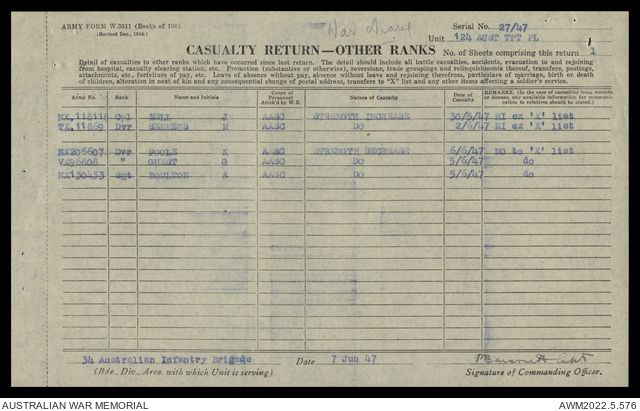 ARMY FORM W.3011 (Books of 100)
(Revised Dec., 1944.)
War Diary
Serial No. 27/47
Unit 124 AUST TPT PL
CASUALTY RETURN—OTHER RANKS
No. of Sheets comprising this return 1
Detail of casualties to other ranks which have occurred since last return. The detail should include all battle casualties, accidents, evacuation to and rejoining
from hospital, casualty clearing station, etc. Promotion (substantive or otherwise), reversions, trade groupings and relinquishments thereof, transfers, postings,
attachments, etc., forfeiture of pay, etc. Leave of absence without pay, absence without leave and rejoining therefrom, particulars of marriage, birth or death
of children, alteration in next of kin and any consequential change of postal address, transfers to "X" list and any other items affecting a soldier's service.
Army No. Rank Name and Initials Corps of Personnel Attach'd by W.E. Nature of Casualty Date of Casualty REMARKS. (In the case of casualties from wounds or disease, any available information for communication to relatives should be stated.)
NX.118118 Cpl BELL J AASC STRENGTH INCREASE 30/5/47 MI ex 'X' list
TX.11869 Dvr M AASC Do 2/6/47 MI ex 'X' list
NX206607 Dvr POOLE K AASC STRENGTH DECREASE 6/6/47 MO to 'X' list
VX96808 " GUEST G AASC Do 5/6/47 do
NX130433 Sgt BOULTON A AASC Do 5/6/47 do
34 Australian Infantry Brigade Date 7 Jun 47
(Bde., Div., Area, with which Unit is serving)
Signature of Commanding Officer.
AUSTRALIAN WAR MEMORIAL AWM2022.5.576